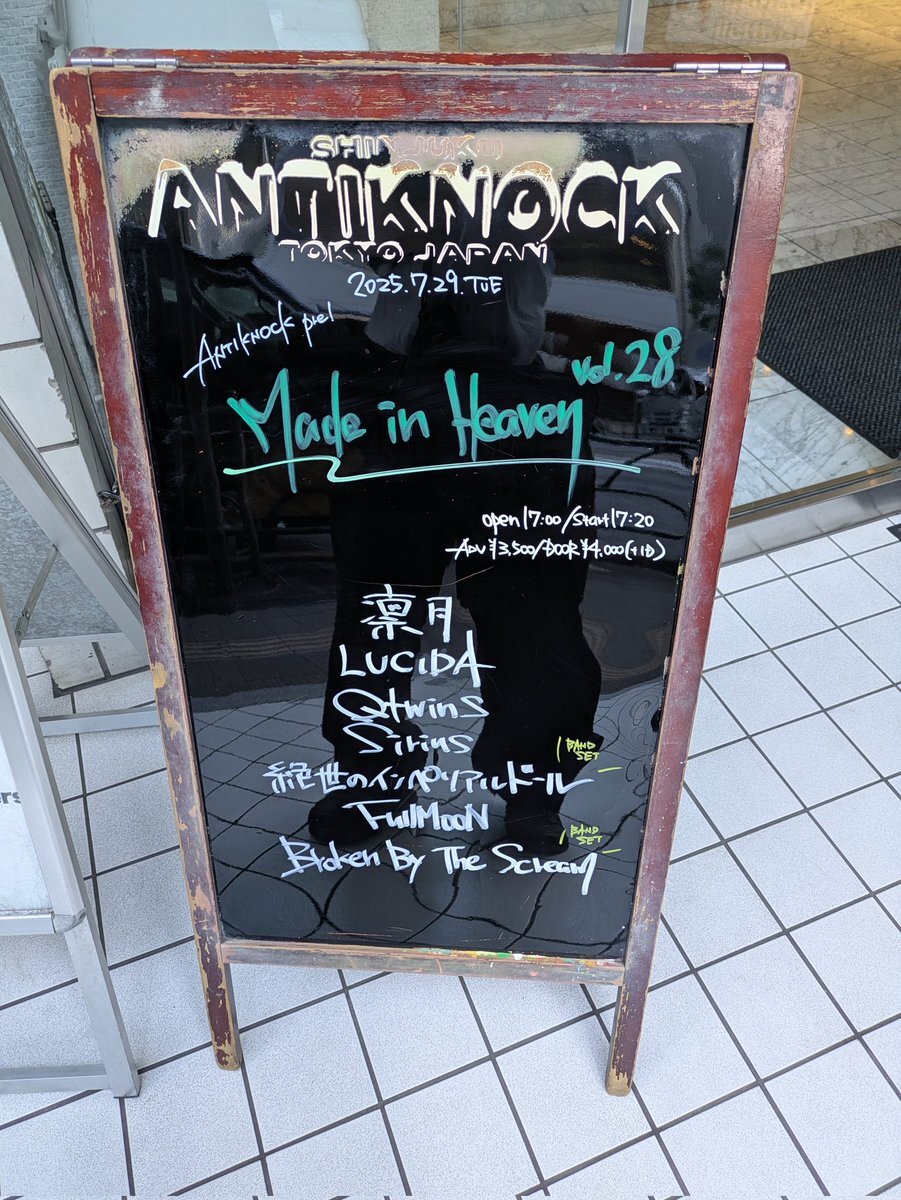 SHINJUKU
ANTIKNOCK
TOKYO JAPAN
2025.7.29.TUE
ANTIKNOCK pre!
Made in Heaven vol.28
open17:00/Start17:20
ADV ¥3,500/DOOR ¥4,000(+1D)
凛月
LUCIDA
Qtwins
Sirius
BAND SET
絶世のインペリアルドール
FullMooN
BAND SET
Broken By The Scream